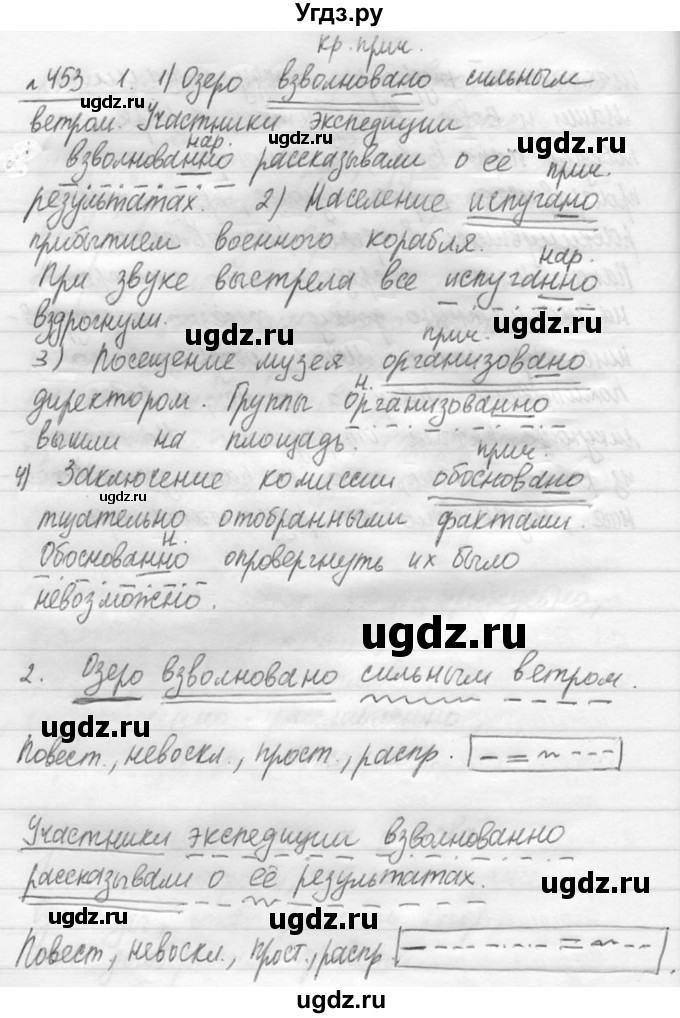 Угдз.ру
кр. прич.
№453 1. 1) Озеро взволновано сильным
ugdz.ru ugdz.ru
ветром. Участники экспедиции
нар.
взволнованно рассказывали о её прич.
результатах. 2) Население испугано
ugdz.ru
прибытием военного корабля.
нар.
При звуке выстрела все испуганно
вздрогнули. ugdz.ru ugdz.ru
прич.
3) Посещение музея организовано
н.
директором. Группы организованно
вышли на площадь.
прич.
4) Заключение комиссии обосновано
ugdz.ru
тщательно отобранными фактами.
н.
Обоснованно опровергнуть их было
невозможно.
ugdz.ru
2. Озеро взволновано сильным ветром.
ugdz.ru
Повест., невоскл., прост., распр.
Участники экспедиции взволнованно
рассказывали о её результатах.
ugdz.ru ugdz.ru ugdz.ru
Повест., невоскл., прост., распр
ugdz.ru